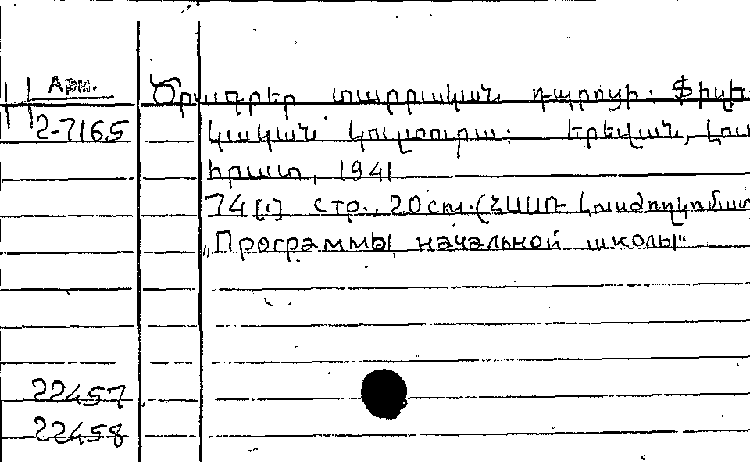 Арм.
2-7165
Ծրագրեր տարրական դպրոցի. Ֆիզի-
կական կուլտուրա: Երևան, Լու-
հրատ, 1941
74 [1] стр., 20 cm. (ՀՍՍՌ Լուսժողկոմատ
„Программы начальной школы"
22457
22458